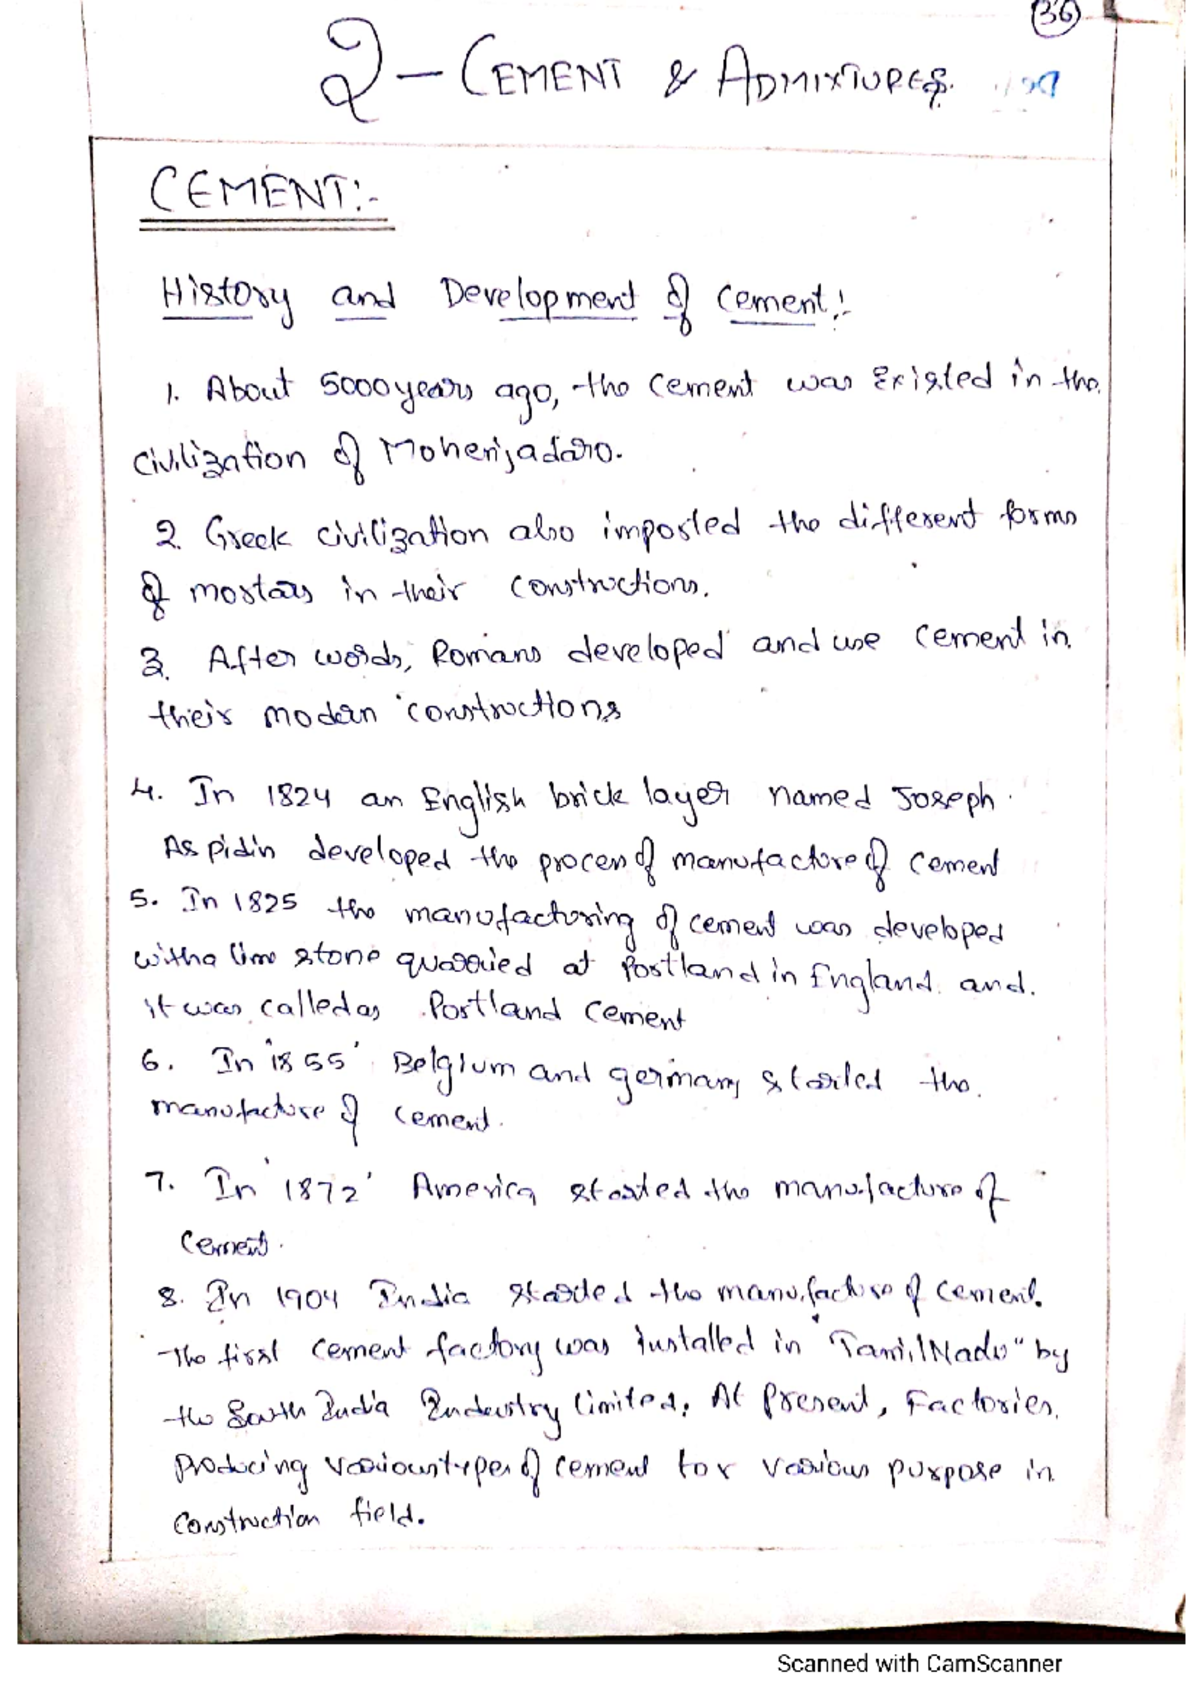 36
2 - CEMENT & ADMIXTURES.
CEMENT:-
History and Development of Cement:-
1. About 5000 years ago, the cement was Existed in the
civilization of Mohenjadaro.
2. Greek civilization also imported the different forms
of mortars in their constructions.
3. After words, Romans developed and use cement in
their modern constructions
4. In 1824 an English brick layer named Joseph
Aspidin developed the process of manufacture of cement
5. In 1825 the manufacturing of cement was developed
with a lime stone quarried at Portland in England. and.
it was called as Portland Cement
6. In '1855' Belgium and germany started the.
manufacture of cement.
7. In '1872' America started the manufacture of
Cement.
8. In 1904 India started the manufacture of cement.
The first cement factory was Installed in "TamilNadu" by
the South India Industry Limited. At Present, Factories.
Producing various types of cement for various purpose in
Construction field.
Scanned with CamScanner